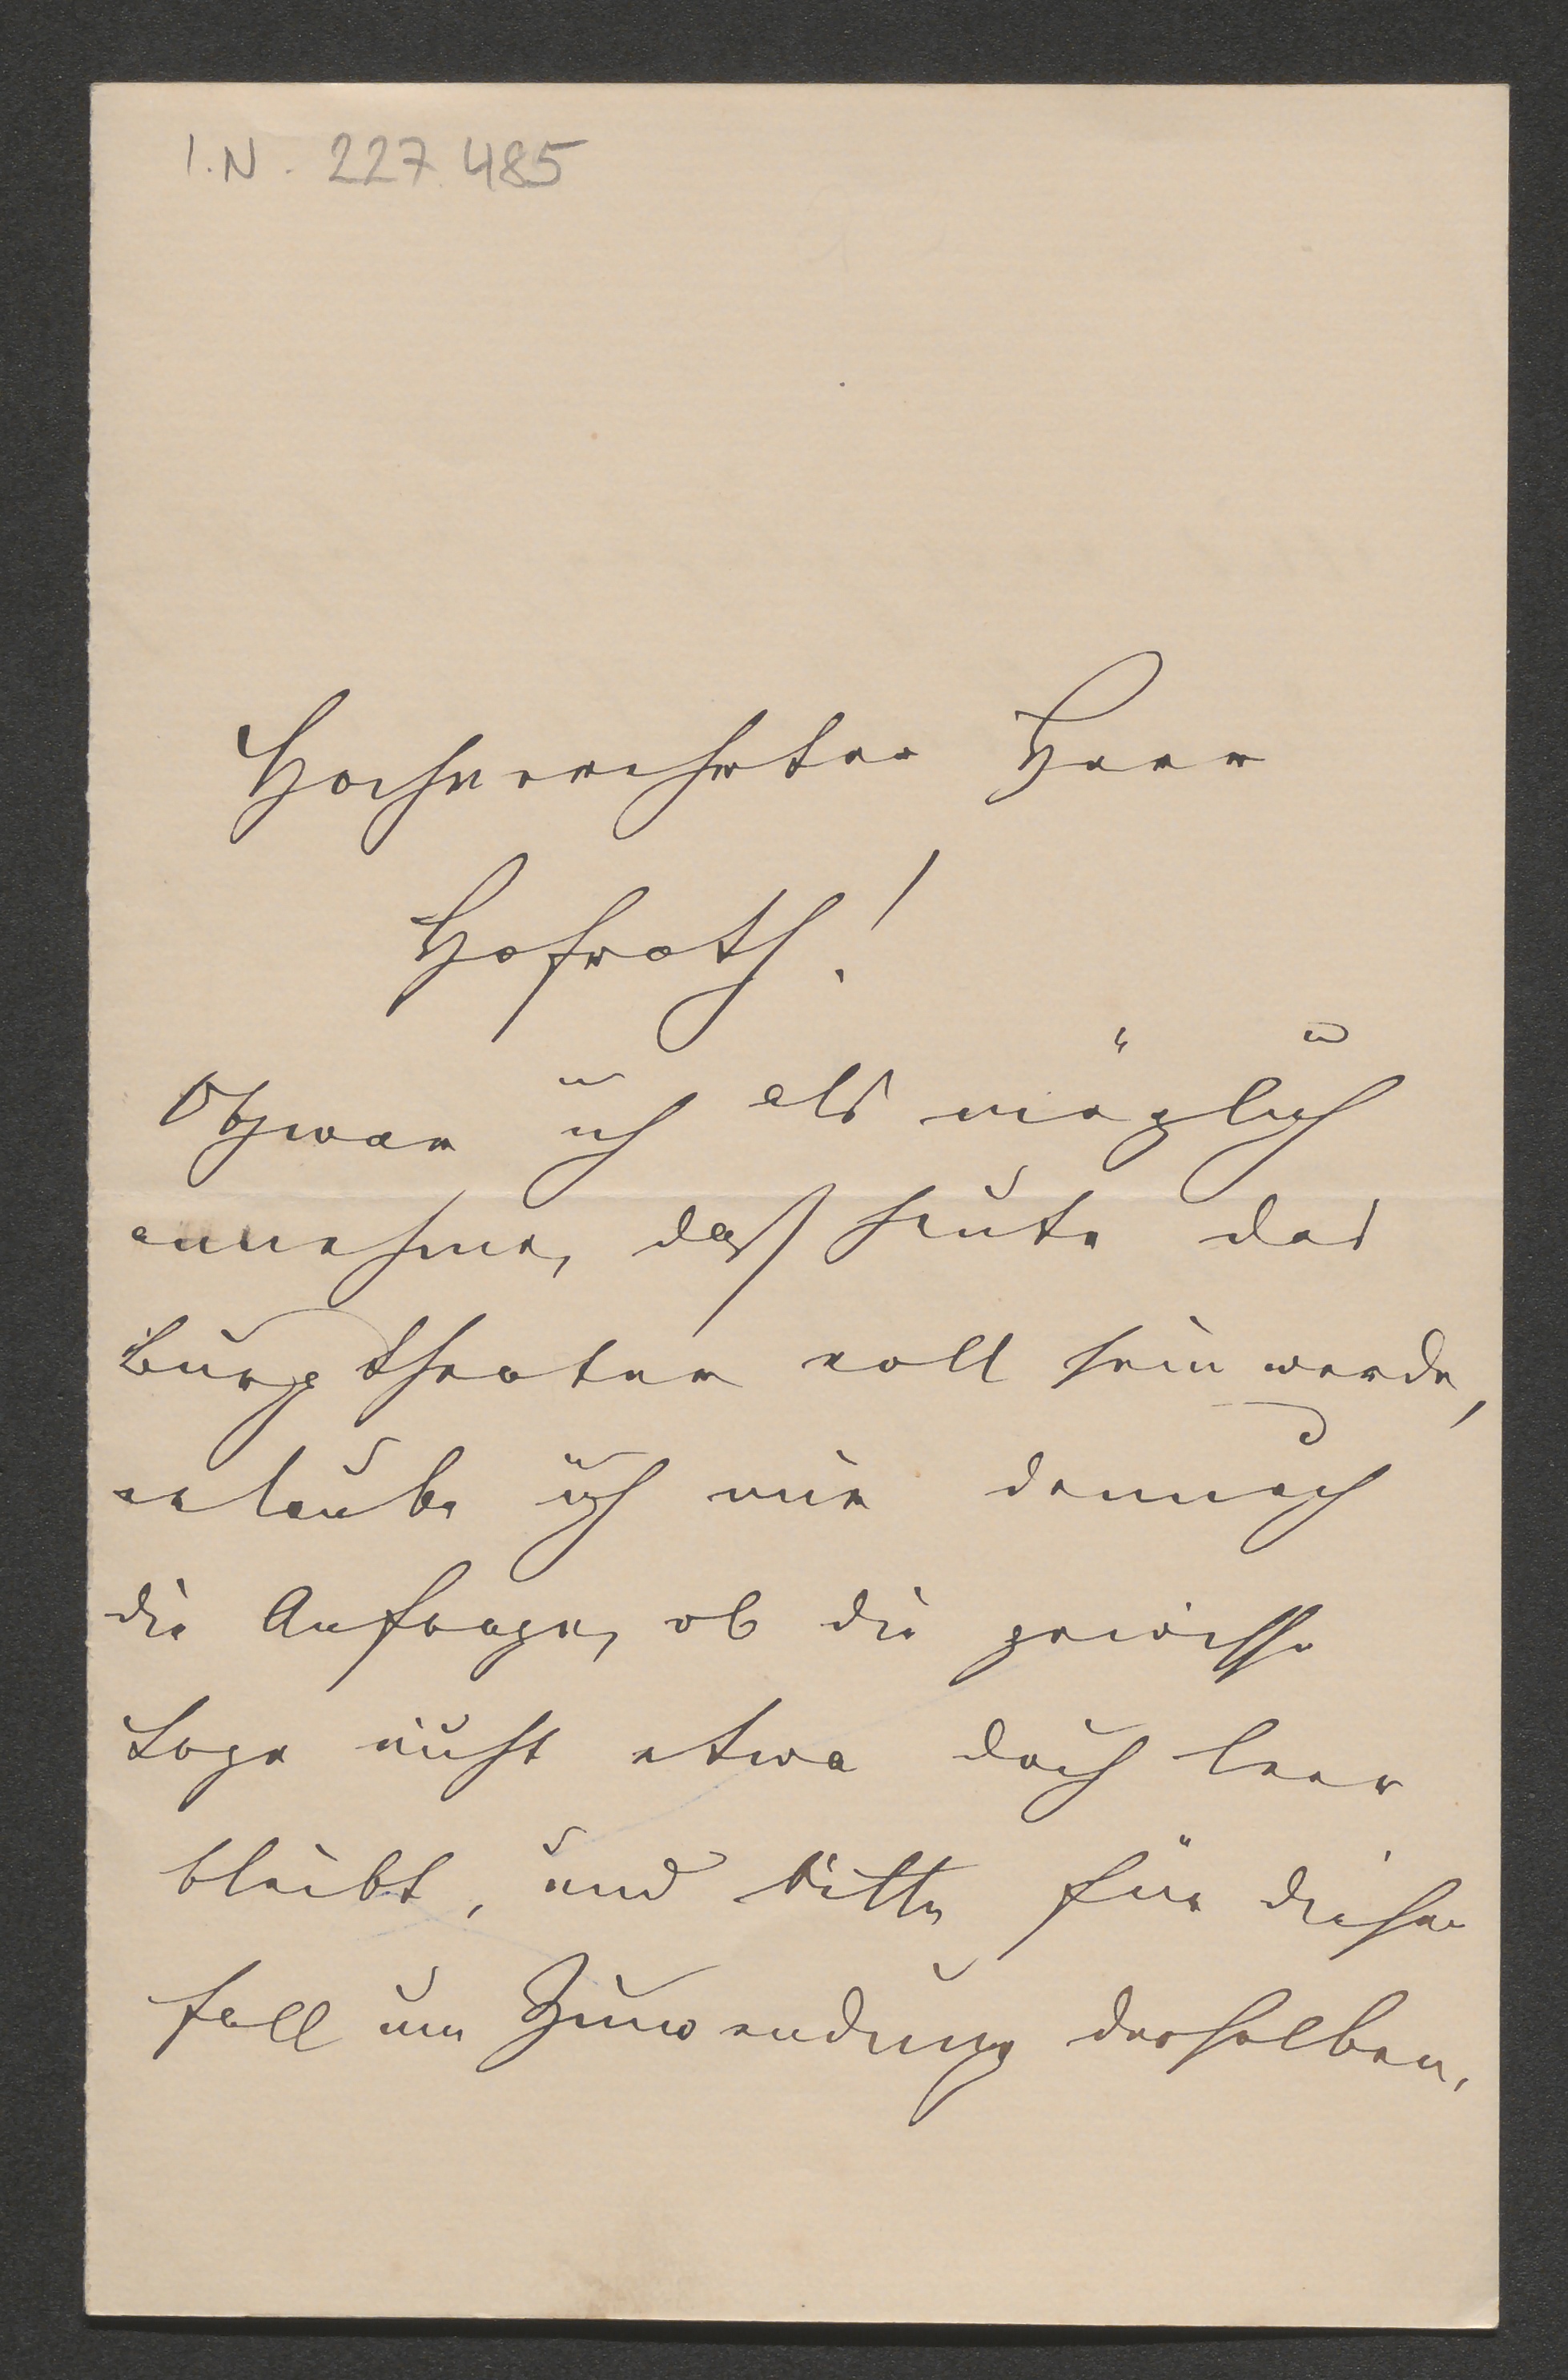 I.N. 227.485
Hochverehrter Herr
Hofrath!
Obzwar ich als möglich
annehme, daß heute das
Burgtheater voll sein werde,
erlaube ich mir dennoch
die Anfrage, ob die gewisse
Loge nicht etwa doch leer
bleibt, und bitte für diesen
Fall um Zuwendung derselben.